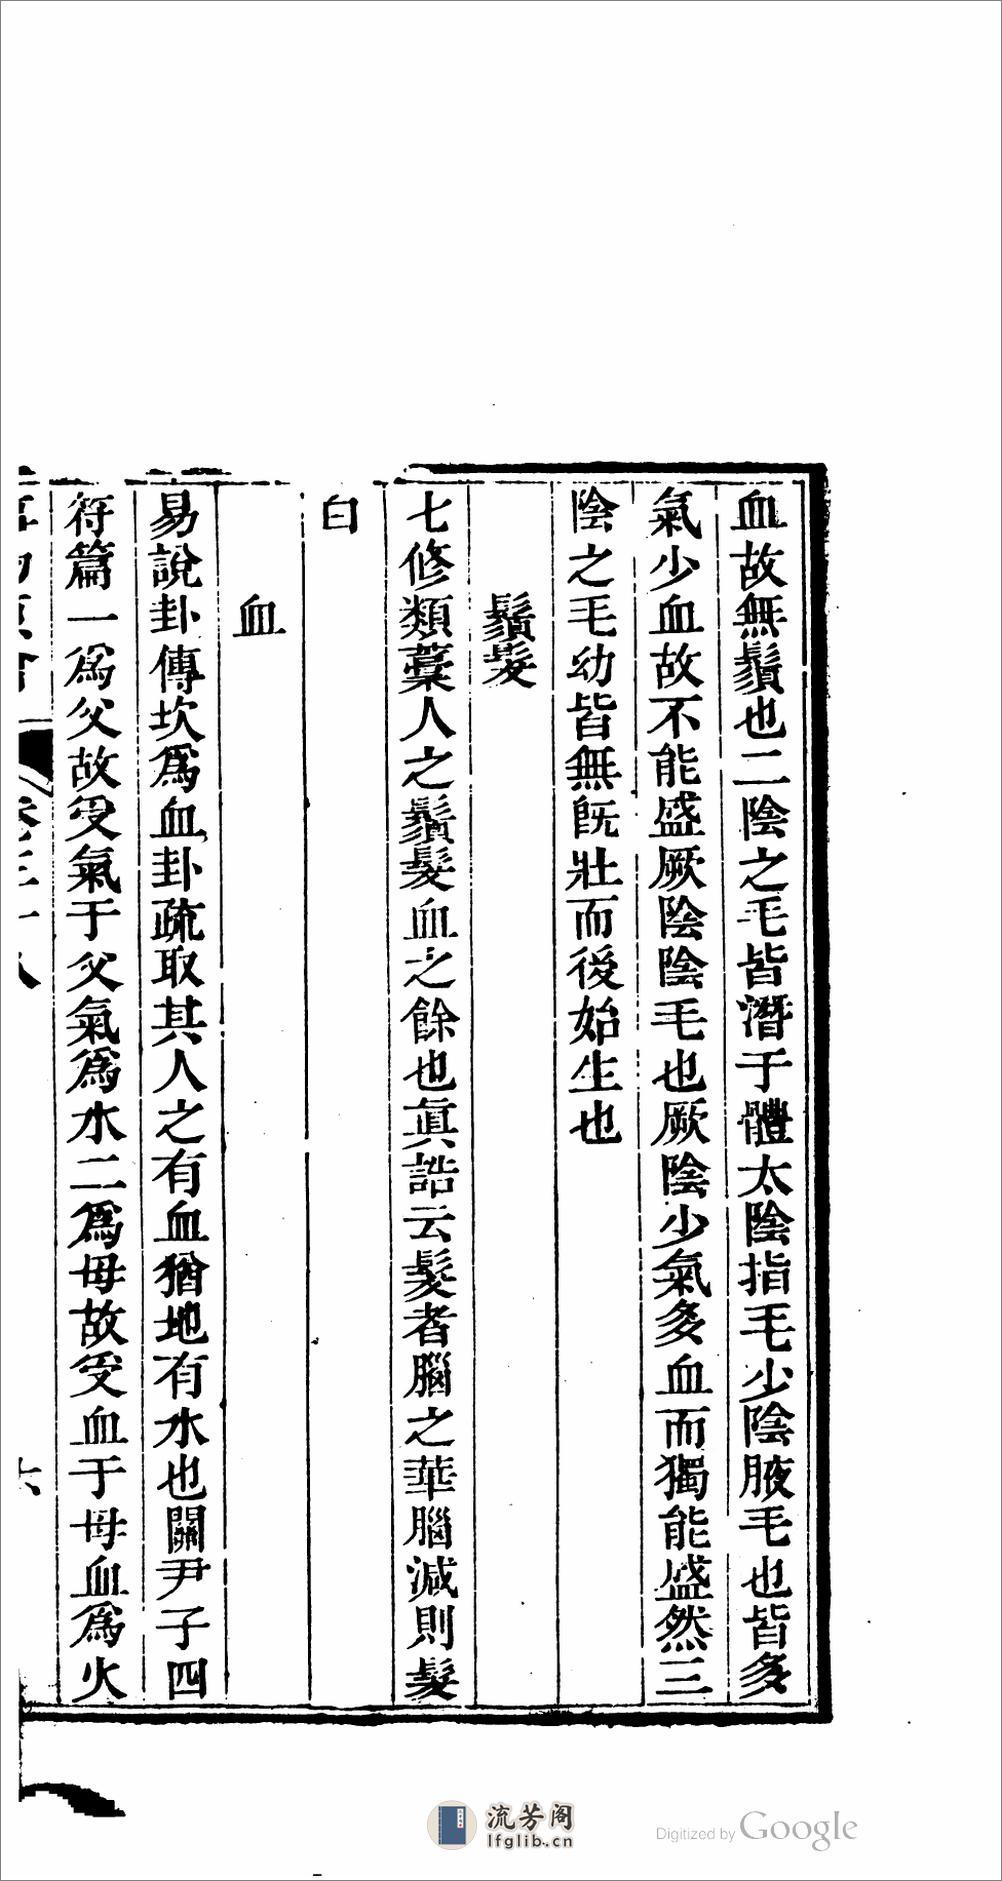 血故無鬚也二陰之毛皆潛于體太陰指毛少陰腋毛也皆多
氣少血故不能盛厥陰陰毛也厥陰少氣多血而獨能盛然三
陰之毛幼皆無旣壯而後始生也
鬚髮
七修類藳人之鬚髮血之餘也眞誥云髮者腦之華腦減則髮
白
血
易說卦傳坎爲血卦疏取其人之有血猶地有水也關尹子四
符篇一爲父故受氣于父氣爲水二爲母故受血于母血爲火
卷三十八
六
流芳阁
lfglib.cn
Digitized by Google